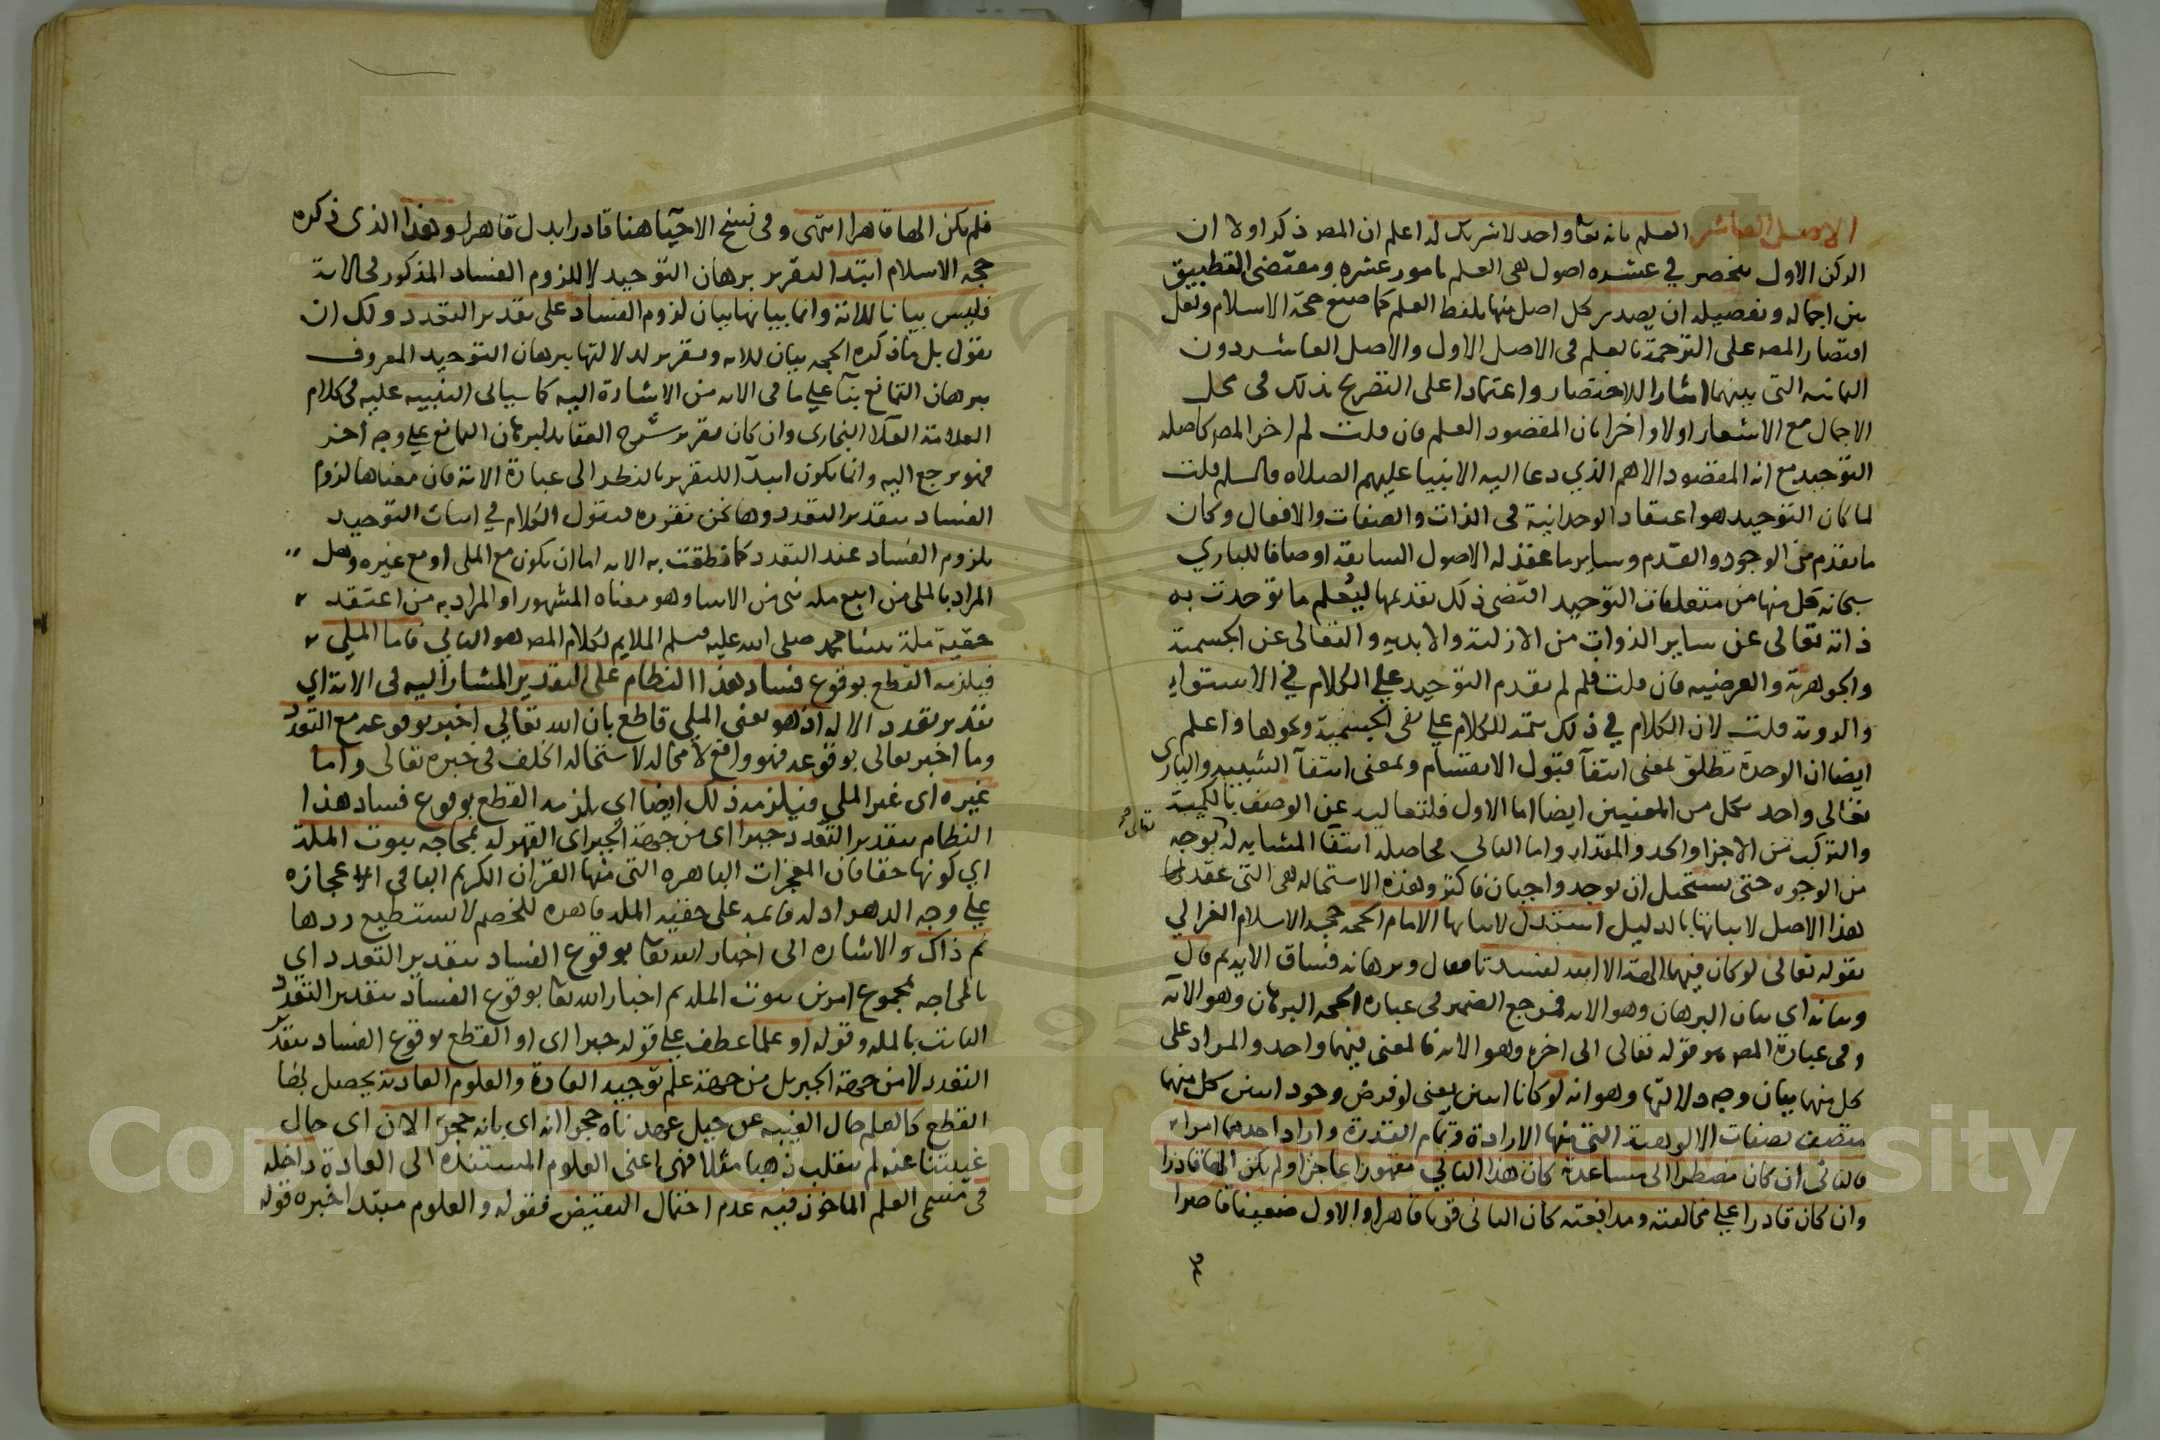 الاصل العاشر العلم بانه تعالى واحد لا شريك له اعلم ان المص ذكر اولا ان
الركن الاول ينحصر في عشرة اصول هي العلم بامور عشرة ومقتضى التطبيق
بين اجماله وتفصيله ان يصدر كل اصل منها بلفظ العلم كما صنع حجة الاسلام ولعل
اقتصار المص على الترجمة بالعلم في الاصل الاول والاصل العاشر دون
الثمانية التي بينهما ايثارا للاختصار واعتمادا على التصريح بذلك في محل
الاجمال مع الاشعار اولا واخرا بان المقصود العلم فان قلت لم اخر المص كاصله
التوحيد مع انه المقصود الاهم الذي دعا اليه الانبيا عليهم الصلاه والسلم قلت
لما كان التوحيد هو اعتقاد الوحدانية في الذات والصفات والافعال وكان
ما تقدم من الوجود والقدم وساير ما عقد له الاصول السابقة اوصافا للباري
سبحانه كل منها من متعلقات التوحيد اقتضى ذلك تقديمها ليُعلم ما توحدت به
ذاته تعالى عن ساير الذوات من الازلية والابديه والتعالى عن الجسمية
والجوهرية والعرضيه فان قلت فلم لم يقدم التوحيد على الكلام في الاستواء
والروية قلت لان الكلام في ذلك تتمة للكلام على نفي الجسمية ونحوها واعلم
ايضا ان الوحدة تطلق بمعنى انتفآ قبول الانقسام وبمعنى انتفآ الشبيه والباري
تعالى واحد بكل من المعنيين ايضا اما الاول فلتعاليه عن الوصف بالكمية
والتركيب من الاجزا والحد والمقدار واما الثاني فحاصله انتفآ المشابه له بوجه
تعالى
من الوجوه حتى يستحيل ان يوجد واجبان فاكثر وهذه الاستحالة هي التي عقد لها
هذا الاصل لاثباتها بالدليل استدل لاثباتها الامام الحجة حجة الاسلام الغزالي
بقوله تعالى لو كان فيهما الهة الا الله لفسدتا فقال وبرهانه فساق الاية ثم قال
وبيانه اي بيان البرهان وهو الاية فمرجع الضمير في عبارة الحجة البرهان وهو الاية
وفي عبارة المص هو قوله تعالى الى اخره وهو الاية فالمعنى فيهما واحد والمراد على
كل منهما بيان وجه دلالتها وهو انه لو كانا اثنين يعني لو فرض وجود اثنين كل منهما
متصف بصفات الالوهية التي منها الارادة وتمام القدرة واراد احدهما امرا
فالثاني ان كان مضطرا الى مساعدته كان هذا الثاني مقهورا عاجزا ولم يكن الها قادرا
وان كان قادرا على مخالفته ومدافعته كان الثاني قويا قاهرا والاول ضعيفا قاصرا
فلم يكن الها قاهرا انتهى وفي نسخ الاحيآ هنا قادرا بدل قاهرا وهذا الذي ذكره
حجة الاسلام ابتدا لتقرير برهان التوحيد لا للزوم الفساد المذكور في الاية
فليس بيانا للاية وانما بيانها بيان لزوم الفساد على تقدير التعدد ولك ان
تقول بل ما ذكره الحجة بيان للاية وتقرير لدلالتها ببرهان التوحيد المعروف
ببرهان التمانع بنآ على ما في الاية من الاشارة اليه كما سياتي التنبيه عليه في كلام
العلامة العلآ البخاري وان كان تقرير شرح العقايد لبرهان التمانع على وجه اخر
فهو يرجع اليه وانما يكون ابتدآ للتقرير بالنظر الى عبارة الاية فان معناها لزوم
الفساد بتقدير التعدد وها نحن نقرره فنقول الكلام في اثبات التوحيد
بلزوم الفساد عند التعدد كما نطقت به الاية اما ان يكون مع الملي او مع غيره وهل
المراد بالملي من اتبع ملة نبي من الانبيا وهو معناه المشهور او المراد به من اعتقد
حقية ملة نبينا محمد صلى الله عليه وسلم الملايم لكلام المص هو الثاني فاما الملي
فيلزمه القطع بوقوع فساد هذا النظام على التقدير المشار اليه في الاية اي
تقدير تعدد الاله اذ هو يعني الملي قاطع بان الله تعالى اخبر بوقوعه مع التعدد
وما اخبر تعالى بوقوعه فهو واقع لا محالة لاستحالة الخلف في خبره تعالى واما
غيره اي غير الملي فيلزمه ذلك ايضا اي يلزمه القطع بوقوع فساد هذا
النظام بتقدير التعدد جبرا اي من جهة الجبر اي القهر له بمحاجه ثبوت الملة
اي كونها حقا فان المعجزات الباهره التي منها القران الكريم الباقي اعجازه
على وجه الدهر ادلة قايمة على حقية الملة قاهره للخصم لا يستطيع ردها
ثم ذاك والاشاره الى اخبار الله تعالى بوقوع الفساد بتقدير التعدد اي
بالمحاجه بمجموع امرين ثبوت الملة ثم اخبار الله تعالى بوقوع الفساد بتقدير التعدد
الثابت بالملة وقوله او علما عطف على قوله جبرا اي او القطع بوقوع الفساد بتقدير
التعدد لا من جهة الجبر بل من جهة علم توجبه العادة والعلوم العادية يحصل بها
القطع كالعلم حال الغيبه عن جبل عهدناه حجرا انه اي بانه حجر الان اي حال
غيبتنا عنه لم ينقلب ذهبا مثلا فهي اعني العلوم المستنده الى العادة داخلة
في مسمى العلم الماخوذ فيه عدم احتمال النقيض فقوله والعلوم مبتدا خبره قوله
Copyright © King Saud University